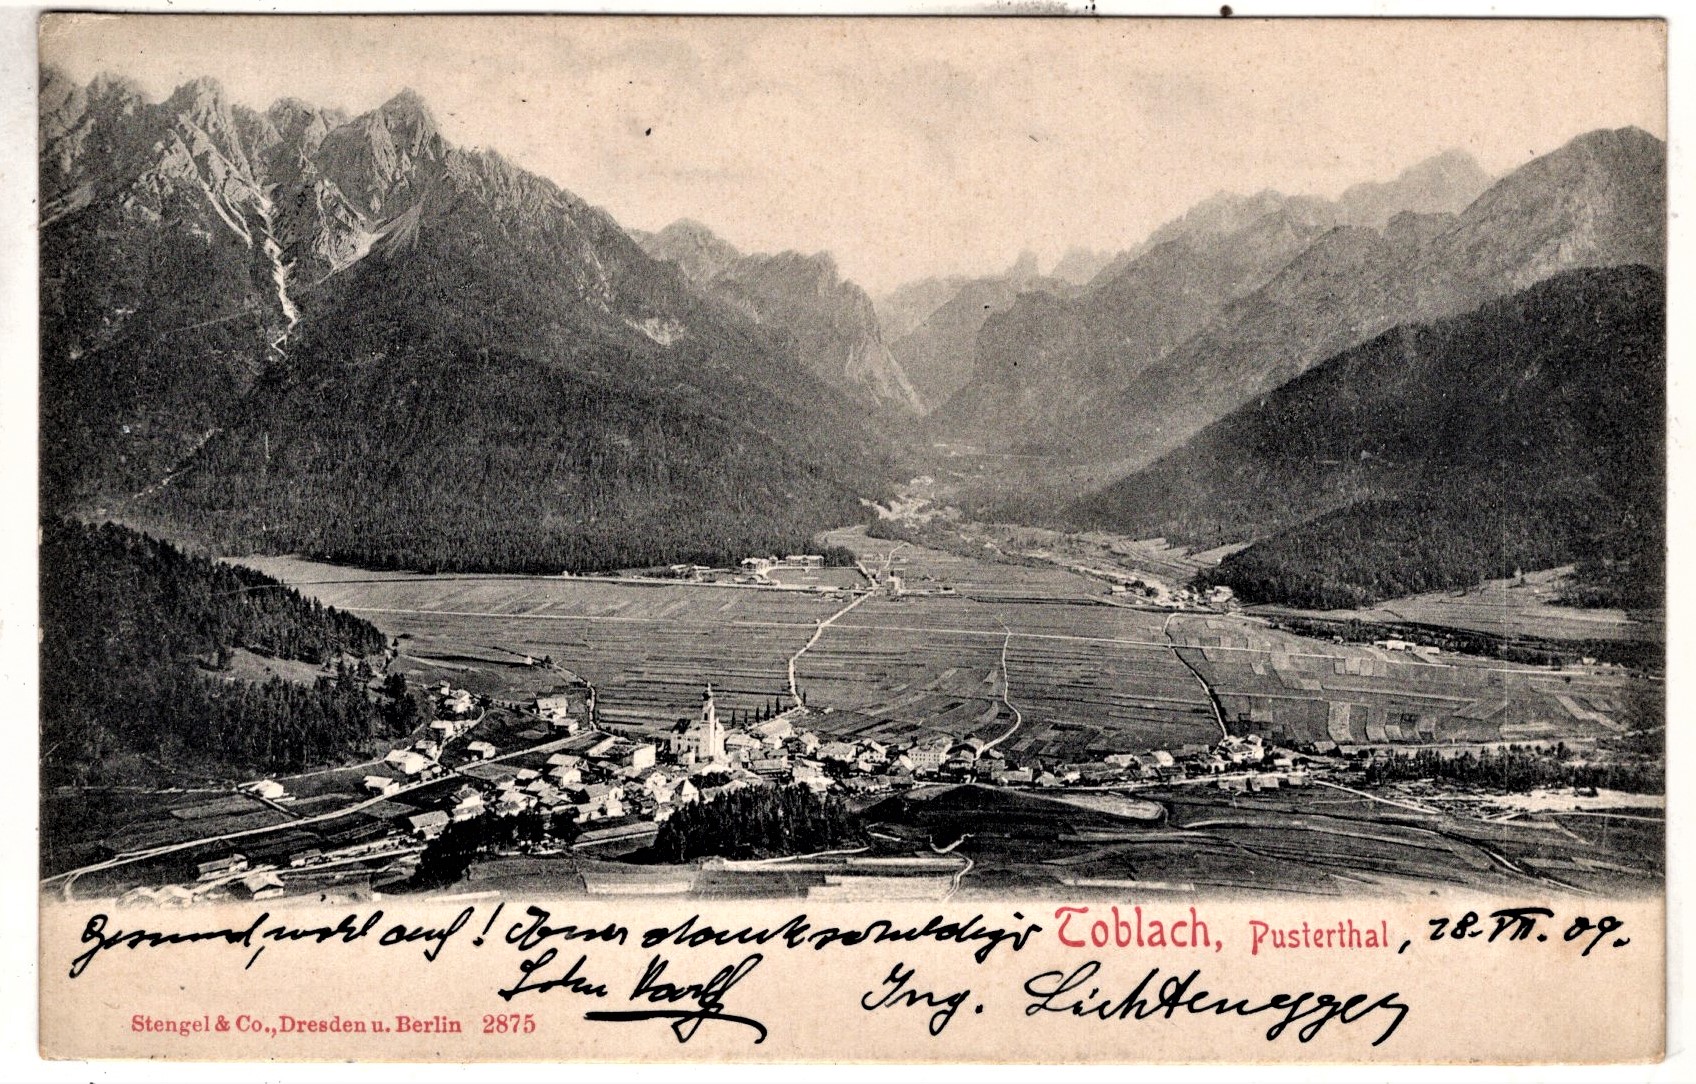 Gesund, wohl auf! Ihner dankschuldiger Toblach, Pusterthal, 28. VII. 09.
Ing. Lichtenegger
Stengel & Co., Dresden u. Berlin 2875